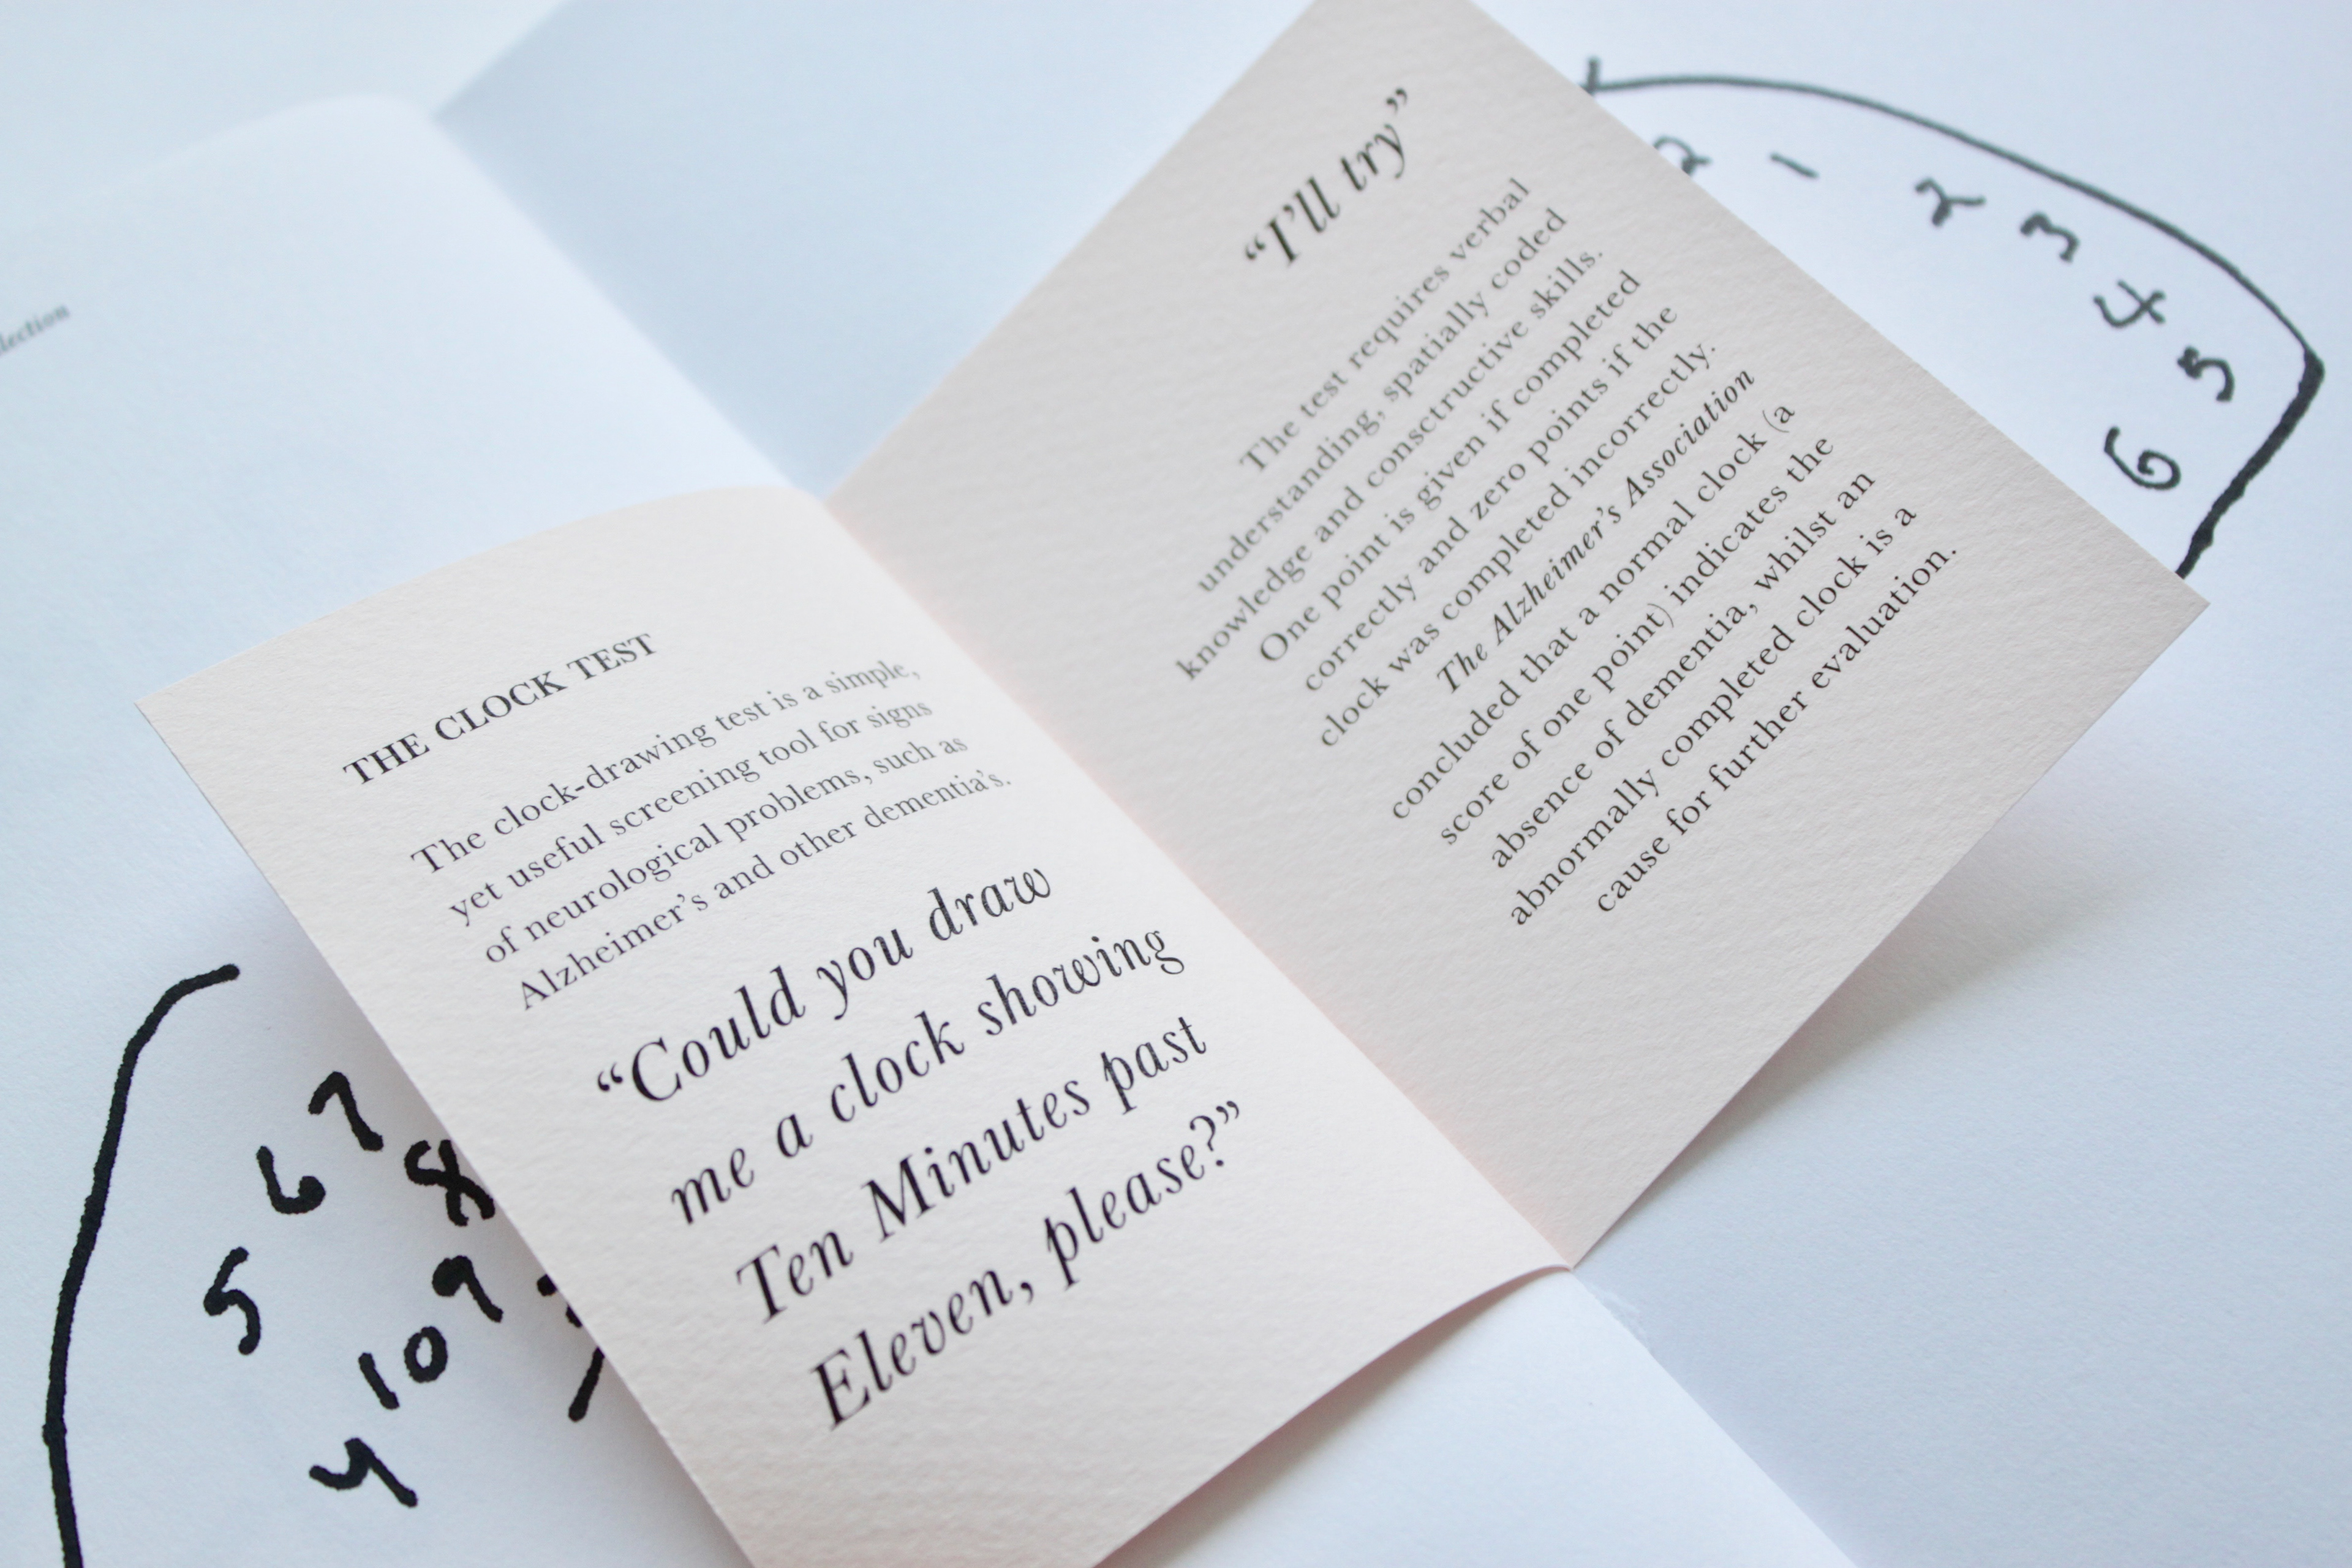 THE CLOCK TEST
The clock-drawing test is a simple,
yet useful screening tool for signs
of neurological problems, such as
Alzheimer's and other dementia's.
“Could you draw
me a clock showing
Ten Minutes past
Eleven, please?”
“I'll try”
The test requires verbal
understanding, spatially coded
knowledge and consctructive skills.
One point is given if completed
correctly and zero points if the
clock was completed incorrectly.
The Alzheimer's Association
concluded that a normal clock (a
score of one point) indicates the
absence of dementia, whilst an
abnormally completed clock is a
cause for further evaluation.
2
1
2
3
4
5
6
7
6
8
5
9
10
4